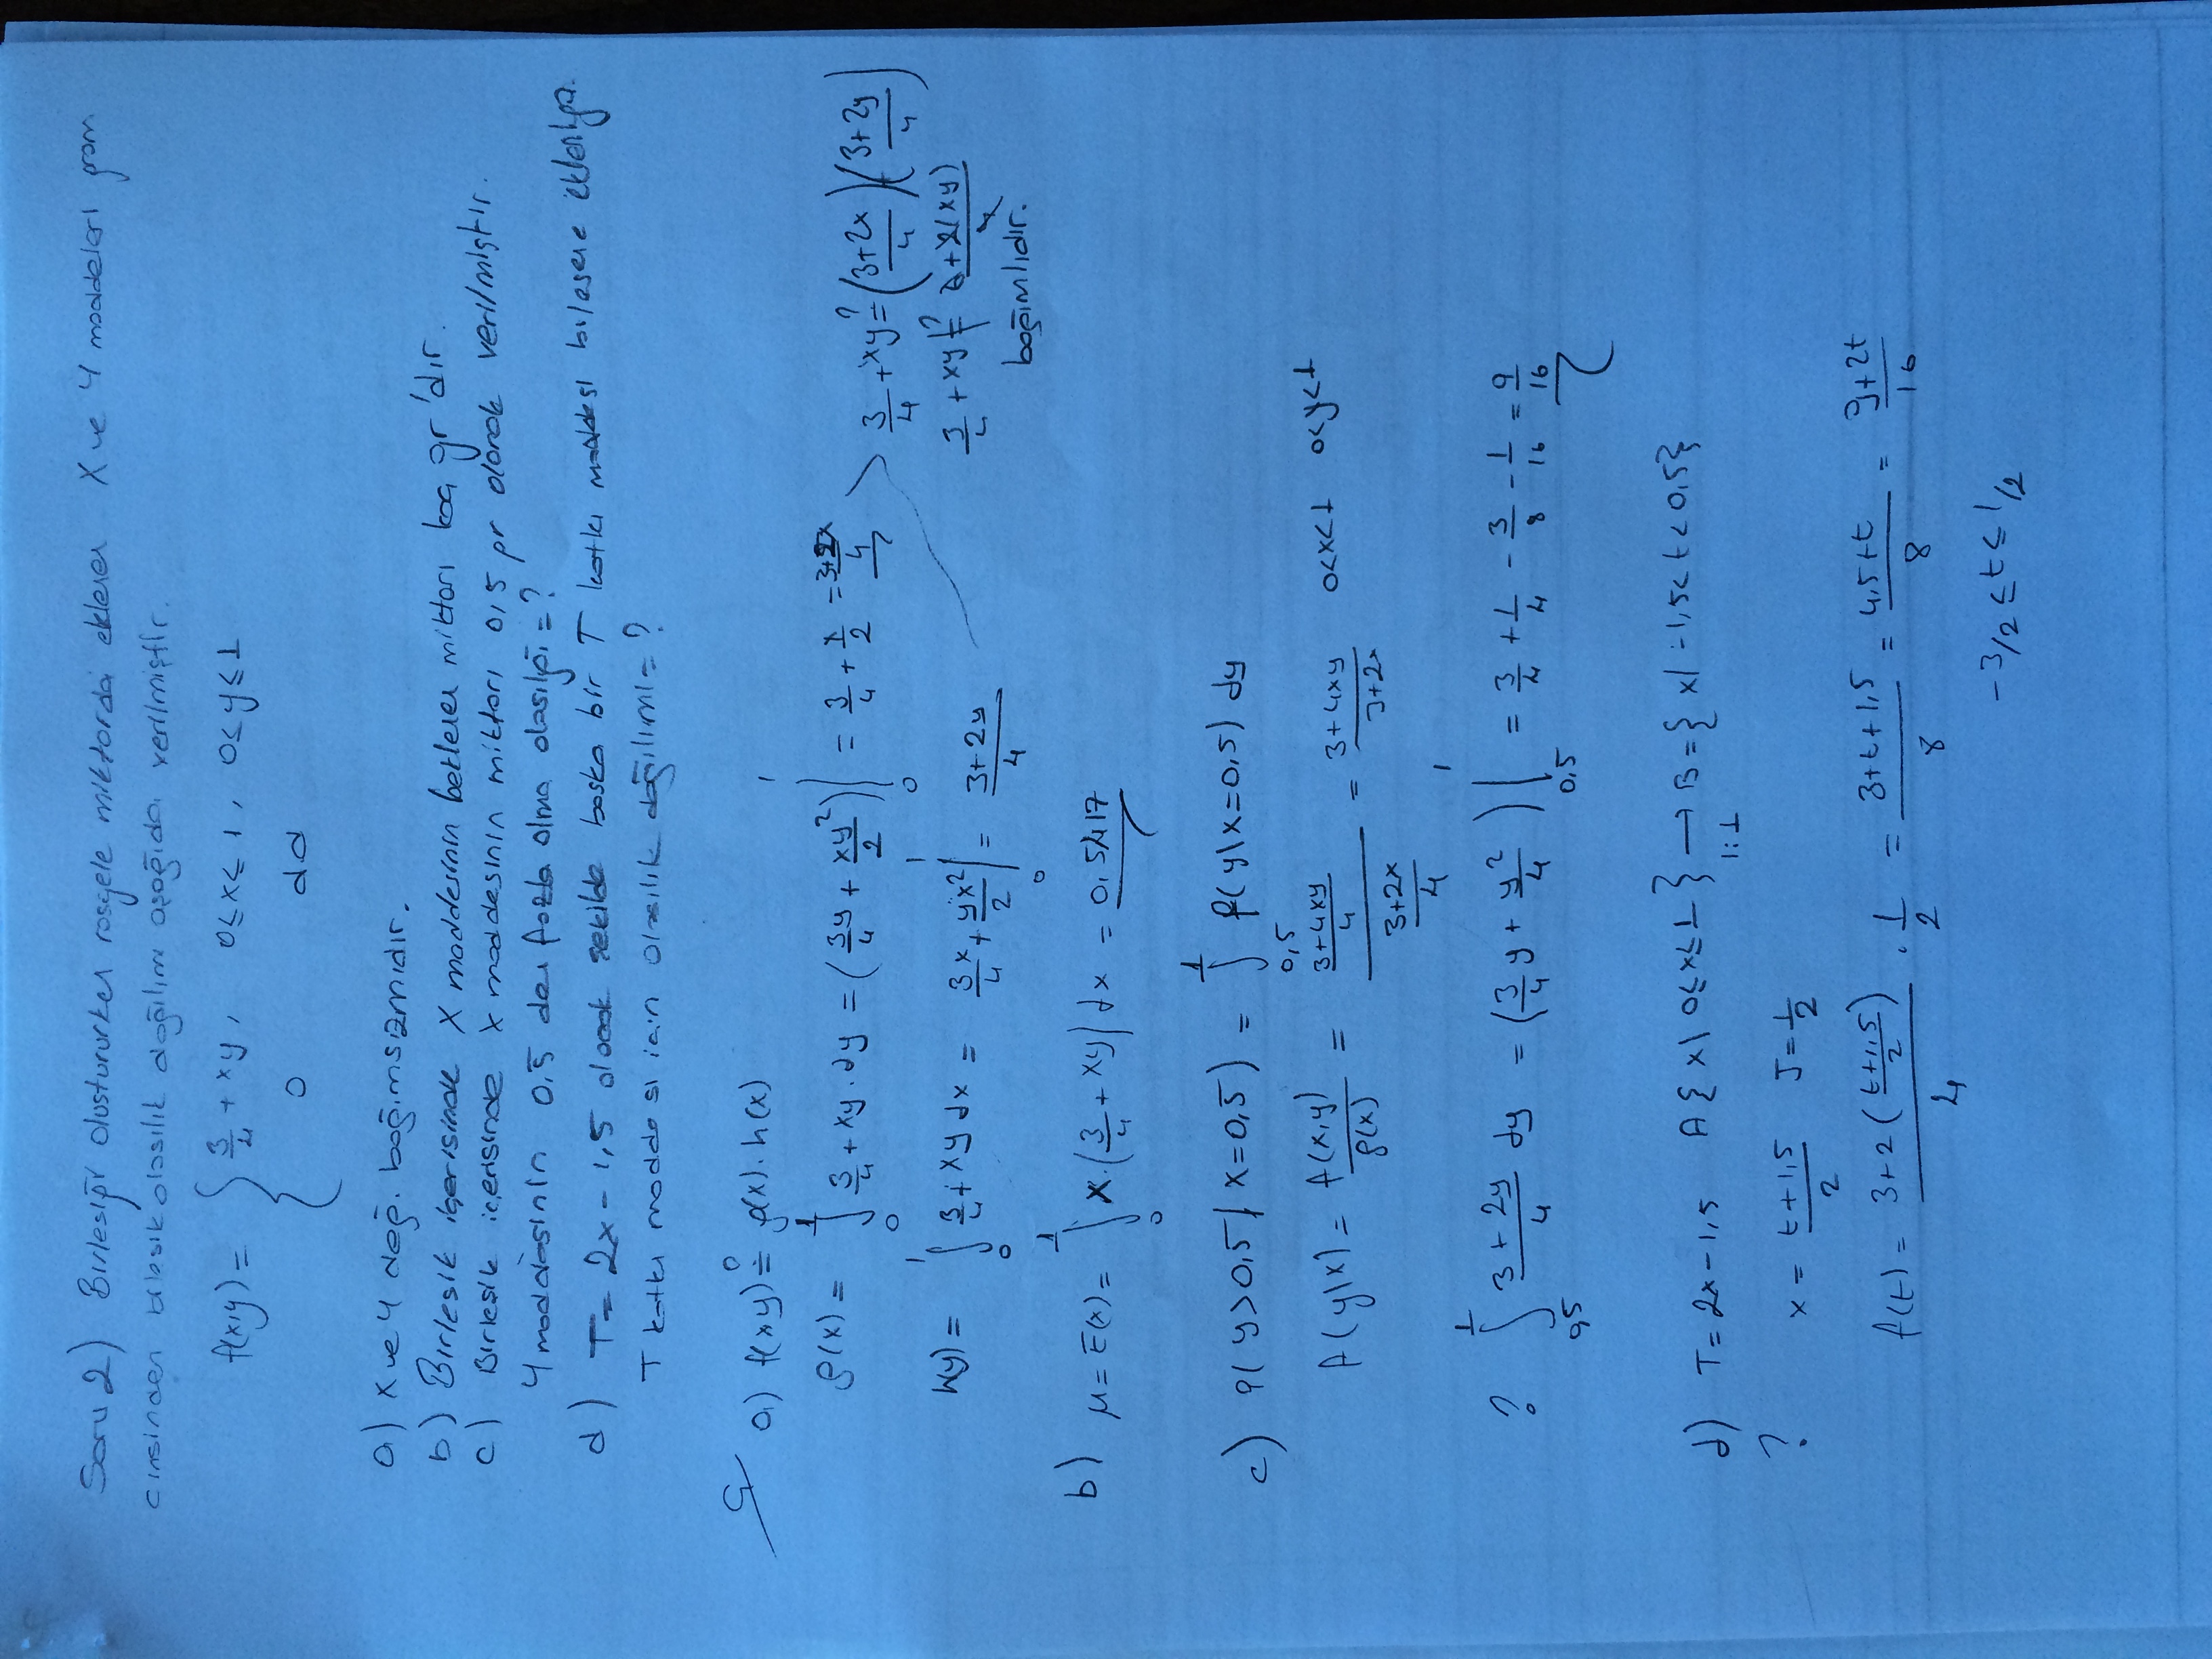 Soru 2) Birleşiği oluştururken rasgele miktarda eklenen X ve Y maddeleri gram
cinsinden bileşik olasılık dağılımı aşağıda verilmiştir.
f(x,y) = { 3/4 + xy, 0≤x≤1, 0≤y≤1
0 dd
a) X ve Y değ. bağımsızmıdır.
b) Birleşik içerisinde X maddesinin beklenen miktarı kaç gr'dır.
c) Birleşik içerisinde X maddesinin miktarı 0,5 gr olarak verilmiştir.
Y maddesinin 0,5 den fazla olma olasılığı = ?
d) T = 2x - 1,5 olacak şekilde başka bir T katkı maddesi bileşene ekleniyor.
T katkı maddesi için olasılık dağılımı = ?
C
a) f(x,y) ≟ g(x).h(x)
g(x) = ∫₀¹ 3/4 + xy.dy = (3y/4 + xy²/2)|₀¹ = 3/4 + x/2 = (3+2x)/4
h(y) = ∫₀¹ 3/4 + xy dx = 3x/4 + yx²/2 |₀¹ = (3+2y)/4
3/4 + xy ≟ ((3+2x)/4)((3+2y)/4)
3/4 + xy ≠?
bağımlıdır.
b) μ = E(x) = ∫₀¹ x.(3/4 + xy) dx = 0,5417
c) P(y>0,5 | x=0,5) = ∫₀,₅¹ f(y|x=0,5) dy
f(y|x) = f(x,y)/g(x) = ((3+4xy)/4)/((3+2x)/4) = (3+4xy)/(3+2x) 0<x<1 0<y<1
? ∫₀,₅¹ (3+2y)/4 dy = (3/4 y + y²/4)|₀,₅¹ = 3/4 + 1/4 - 3/8 - 1/16 = 9/16
d) T = 2x - 1,5 A{x| 0≤x≤1} → B = {x| -1,5< t < 0,5}
1:1
? x = (t+1,5)/2 J = 1/2
f(t) = (3+2((t+1,5)/2))/4 . 1/2 = (3+t+1,5)/8 = (4,5+t)/8 = (9+2t)/16
-3/2 ≤ t ≤ 1/2